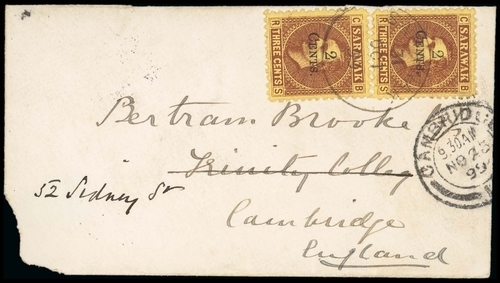 C SARAWAK B
2
CENTS.
R THREE CENTS S
C SARAWAK B
2
CENTS.
R THREE CENTS S
CAMBRIDGE
9.30AM
NO 23
99
Bertram Brooke
Trinity College
52 Sidney St
Cambridge
England